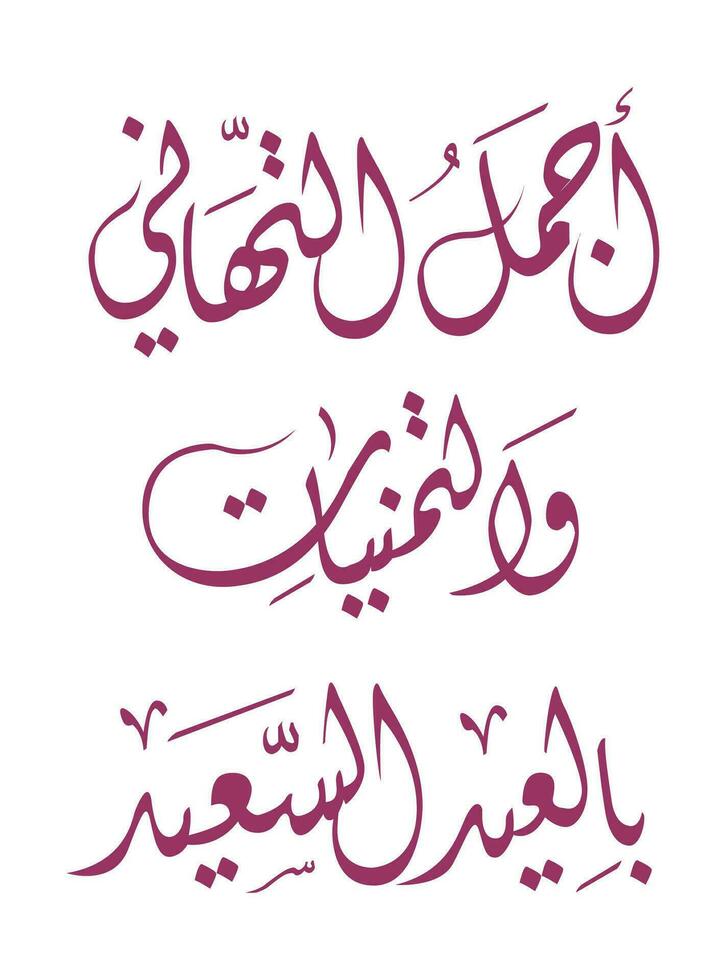 أجملُ التّهَاني
وَالتمنياتِ
بِالعيد السَّعِيَد